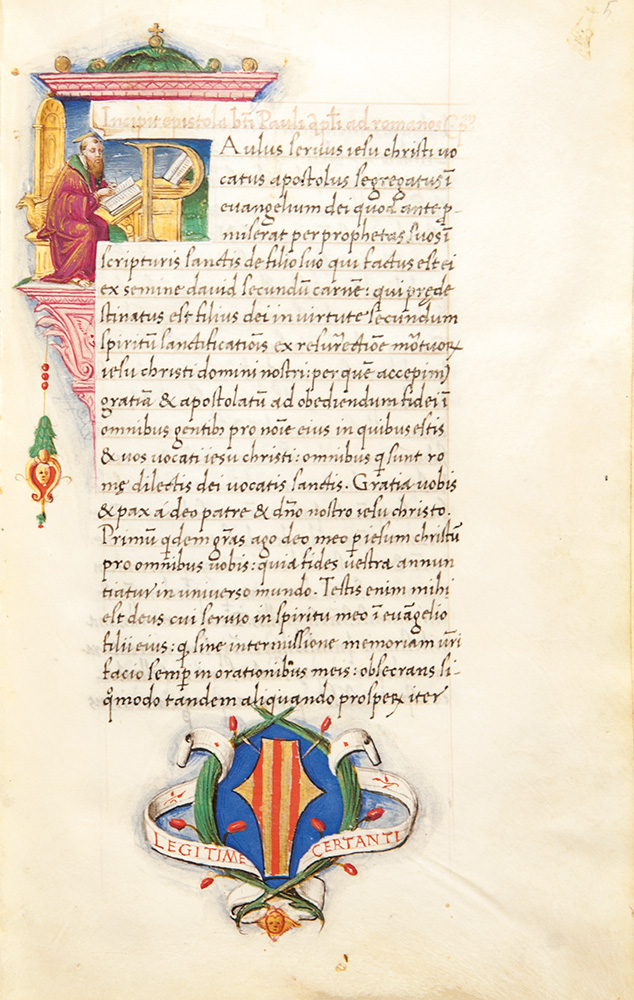 5
Incipit epistola bti Pauli apti ad romanos
P
Aulus servus iesu christi vo
catus apostolus segregatus ī
evangelium dei quod ante p
miserat per prophetas suos ī
scripturis sanctis de filio suo qui factus est ei
ex semine david secundū carnē: qui pręde
stinatus est filius dei in virtute secundum
spiritū sanctificatiōis ex resurectiōe mōtuoꝝ
iesu christi domini nostri: per quē accepim9
gratiā & apostolatū ad obediendum fidei ī
omnibus gentibs pro noīe eius in quibus estis
& vos vocati iesu christi: omnibus q sunt ro
mę dilectis dei vocatis sanctis. Gratia vobis
& pax á deo patre & dño nostro iesu christo.
Primū qdem grās ago deo meo p iesum christū
pro omnibus vobis: quia fides vestra annun
tiatur in universo mundo. Testis enim mihi
est deus cui servio in spiritu meo ī evāgelio
filii eius: q sine intermissione memoriam vr̄i
facio semp in orationibus meis: obsecrans si
qmodo tandem aliquando prospeꝝ iter
LEGITIME CERTANTI